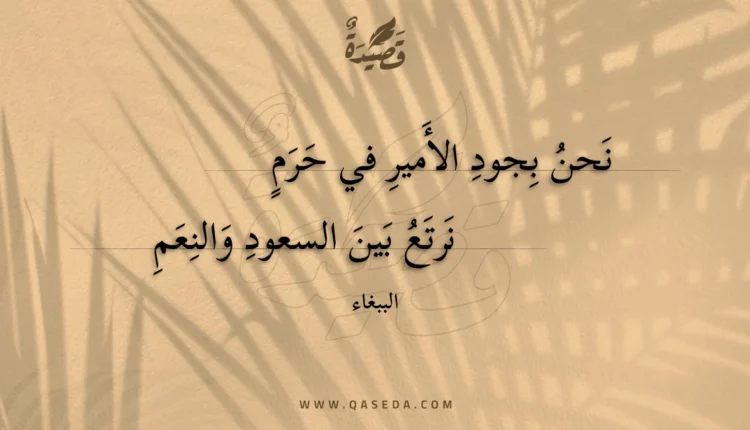 قَصِيْدَةٌ
نَحنُ بِجودِ الأَميرِ في حَرَمٍ
نَرتَعُ بَينَ السعودِ وَالنِعَمِ
الببغاء
WWW.QASEDA.COM